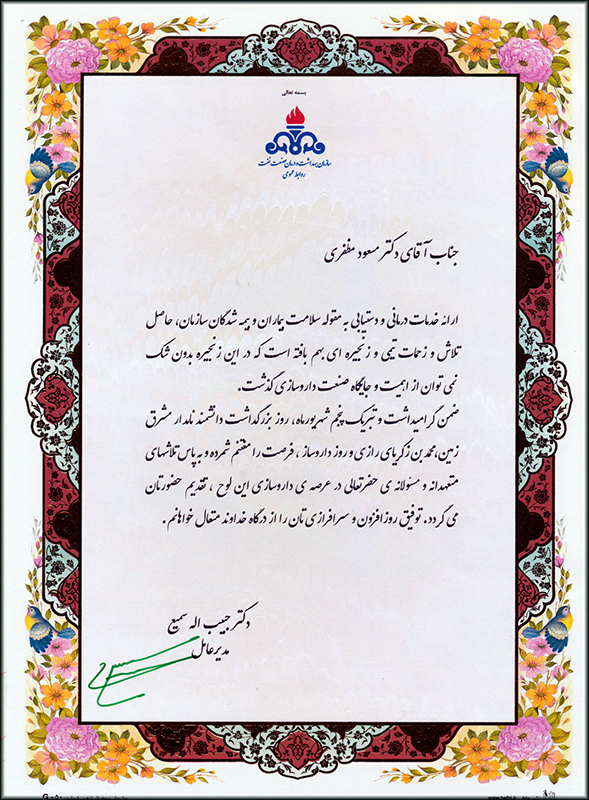 بسمه تعالی
سازمان بهداشت و درمان صنعت نفت
روابط عمومی
جناب آقای دکتر مسعود مظفری
ارائه خدمات درمانی و دستیابی به مقوله سلامت بیماران و بیمه شدگان سازمان، حاصل
تلاش و زحمات تیمی و زنجیره ای بهم بافته است که در این زنجیره بدون شک
نمی توان از اهمیت و جایگاه صنعت داروسازی گذشت.
ضمن گرامیداشت و تبریک پنجم شهریورماه، روز بزرگداشت دانشمند نامدار مشرق
زمین، محمد بن زکریای رازی و روز داروساز، فرصت را مغتنم شمرده و به پاس تلاشهای
متعهدانه و مسئولانه ی حضرتعالی در عرصه ی داروسازی این لوح، تقدیم حضورتان
می گردد. توفیق روزافزون و سرافرازی تان را از درگاه خداوند متعال خواهانم.
دکتر حبیب اله سمیع
مدیرعامل